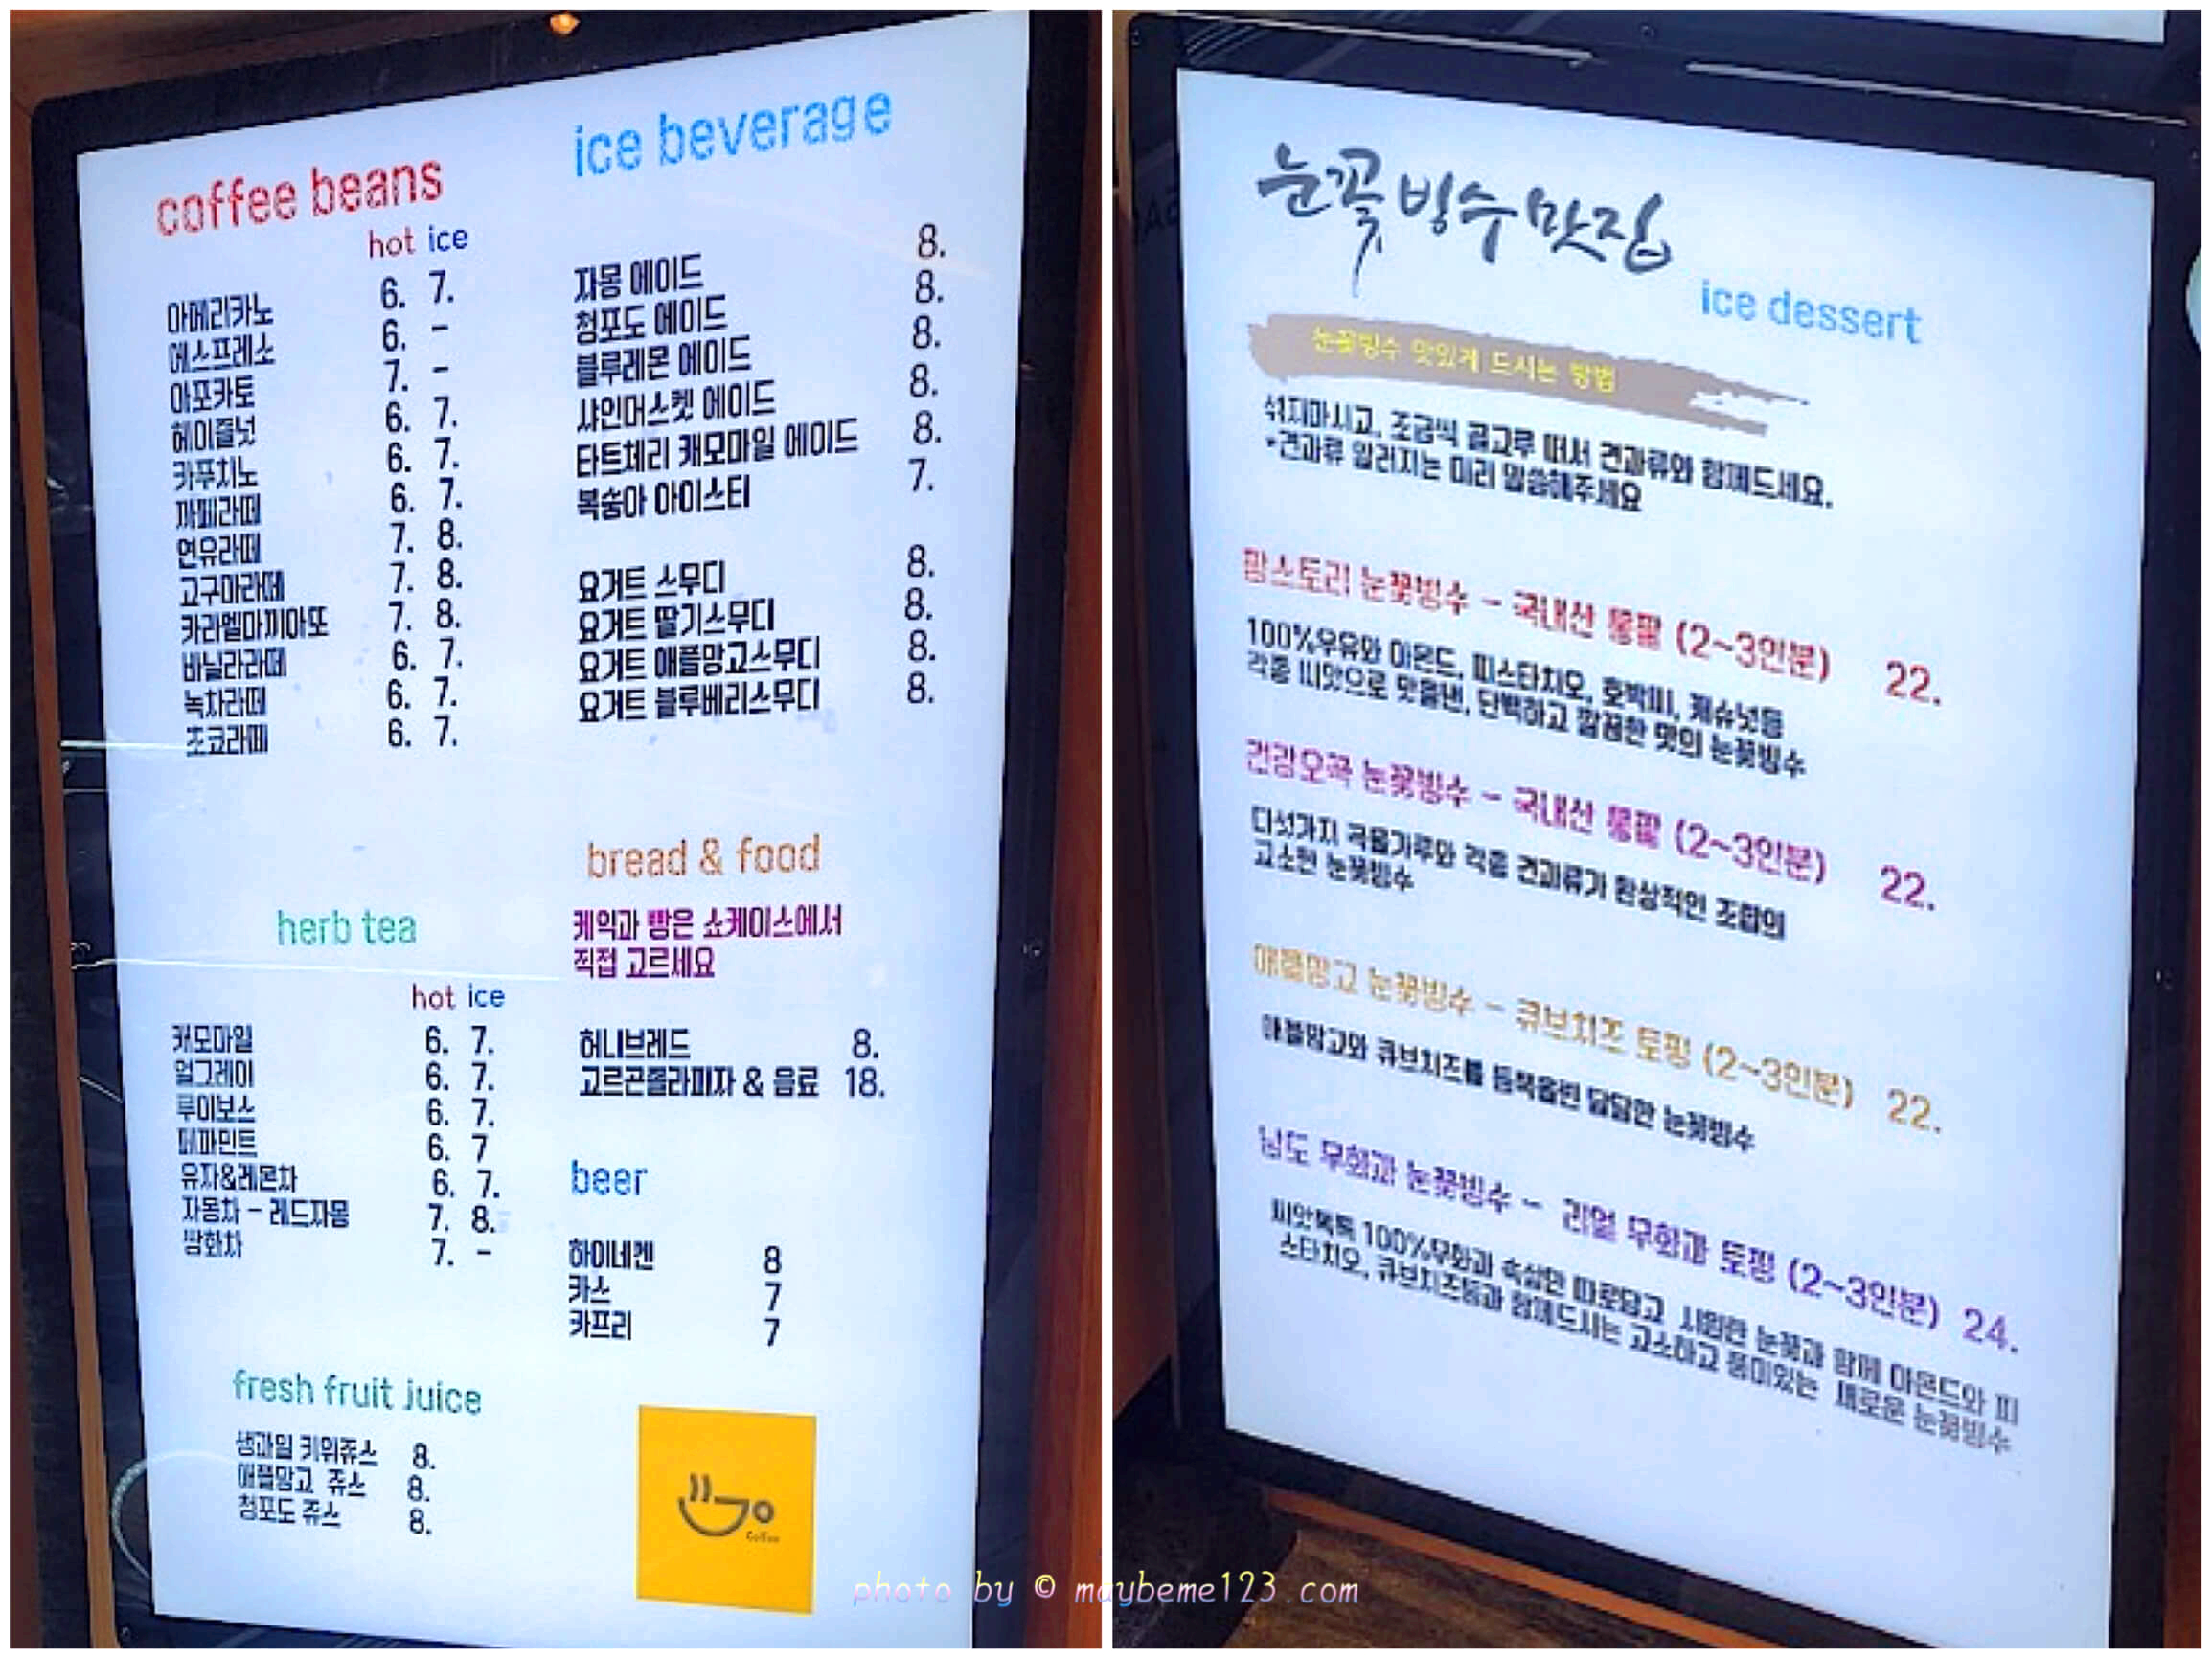 coffee beans
hot ice
아메리카노 6. 7.
에스프레소 6. -
아포카토 7. -
헤이즐넛 6. 7.
카푸치노 6. 7.
까페라떼 6. 7.
연유라떼 7. 8.
고구마라떼 7. 8.
카라멜마끼아또 7. 8.
바닐라라떼 6. 7.
녹차라떼 6. 7.
초코라떼 6. 7.
herb tea
hot ice
캐모마일 6. 7.
얼그레이 6. 7.
루이보스 6. 7.
페파민트 6. 7
유자&레몬차 6. 7.
자몽차 - 레드자몽 7. 8.
쌍화차 7. -
fresh fruit juice
생과일 키위쥬스 8.
애플망고 쥬스 8.
청포도 쥬스 8.
ice beverage
자몽 에이드 8.
청포도 에이드 8.
블루레몬 에이드 8.
샤인머스켓 에이드 8.
타트체리 캐모마일 에이드 8.
복숭아 아이스티 7.
요거트 스무디 8.
요거트 딸기스무디 8.
요거트 애플망고스무디 8.
요거트 블루베리스무디 8.
bread & food
케익과 빵은 쇼케이스에서
직접 고르세요
허니브레드 8.
고르곤졸라피자 & 음료 18.
beer
하이네켄 8
카스 7
카프리 7
Coffee
눈꽃빙수맛집
ice dessert
눈꽃빙수 맛있게 드시는 방법
섞지마시고, 조금씩 골고루 떠서 견과류와 함께드세요.
*견과류 알러지는 미리 말씀해주세요
팥스토리 눈꽃빙수 - 국내산 통팥 (2~3인분) 22.
100%우유와 아몬드, 피스타치오, 호박씨, 캐슈넛등
각종 씨앗으로 맛을낸, 단백하고 깔끔한 맛의 눈꽃빙수
건강오곡 눈꽃빙수 - 국내산 통팥 (2~3인분) 22.
다섯가지 곡물가루와 각종 견과류가 환상적인 조합의
고소한 눈꽃빙수
애플망고 눈꽃빙수 - 큐브치즈 토핑 (2~3인분) 22.
애플망고와 큐브치즈를 듬뿍올린 달달한 눈꽃빙수
남도 무화과 눈꽃빙수 - 리얼 무화과 토핑 (2~3인분) 24.
씨앗톡톡 100%무화과 속살만 따로담고 시원한 눈꽃과 함께 아몬드와 피
스타치오, 큐브치즈등과 함께드시는 고소하고 풍미있는 새로운 눈꽃빙수
photo by © maybeme123.com